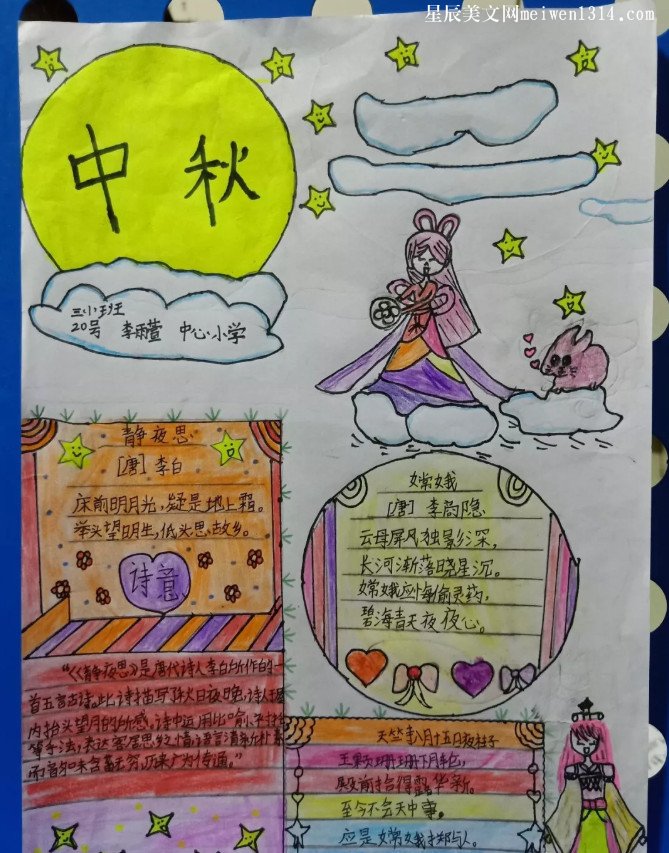 星辰美文网meiwen1314.com
中秋
三小班
20号 李雨萱 中心小学
静夜思
[唐] 李白
床前明月光,疑是地上霜。
举头望明生,低头思故乡。
诗意
嫦娥
[唐] 李商隐
云母屏风独影深,
长河渐落晓星沉。
嫦娥应悔偷灵药,
碧海青天夜夜心。
“《静夜思》是唐代诗人李白所作的一
首五言古诗。此诗描写了秋日夜晚,诗人
内抬头望月的所感,诗中运用比喻、
等手法,表达客居思乡之情,语言清新朴素
而韵味含蓄无穷,历来广为传诵。”
天竺 八月十五日夜桂子
玉颗珊珊下月轮,
殿前拾得露华新。
至今不会天中事,
应是嫦娥掷与人。